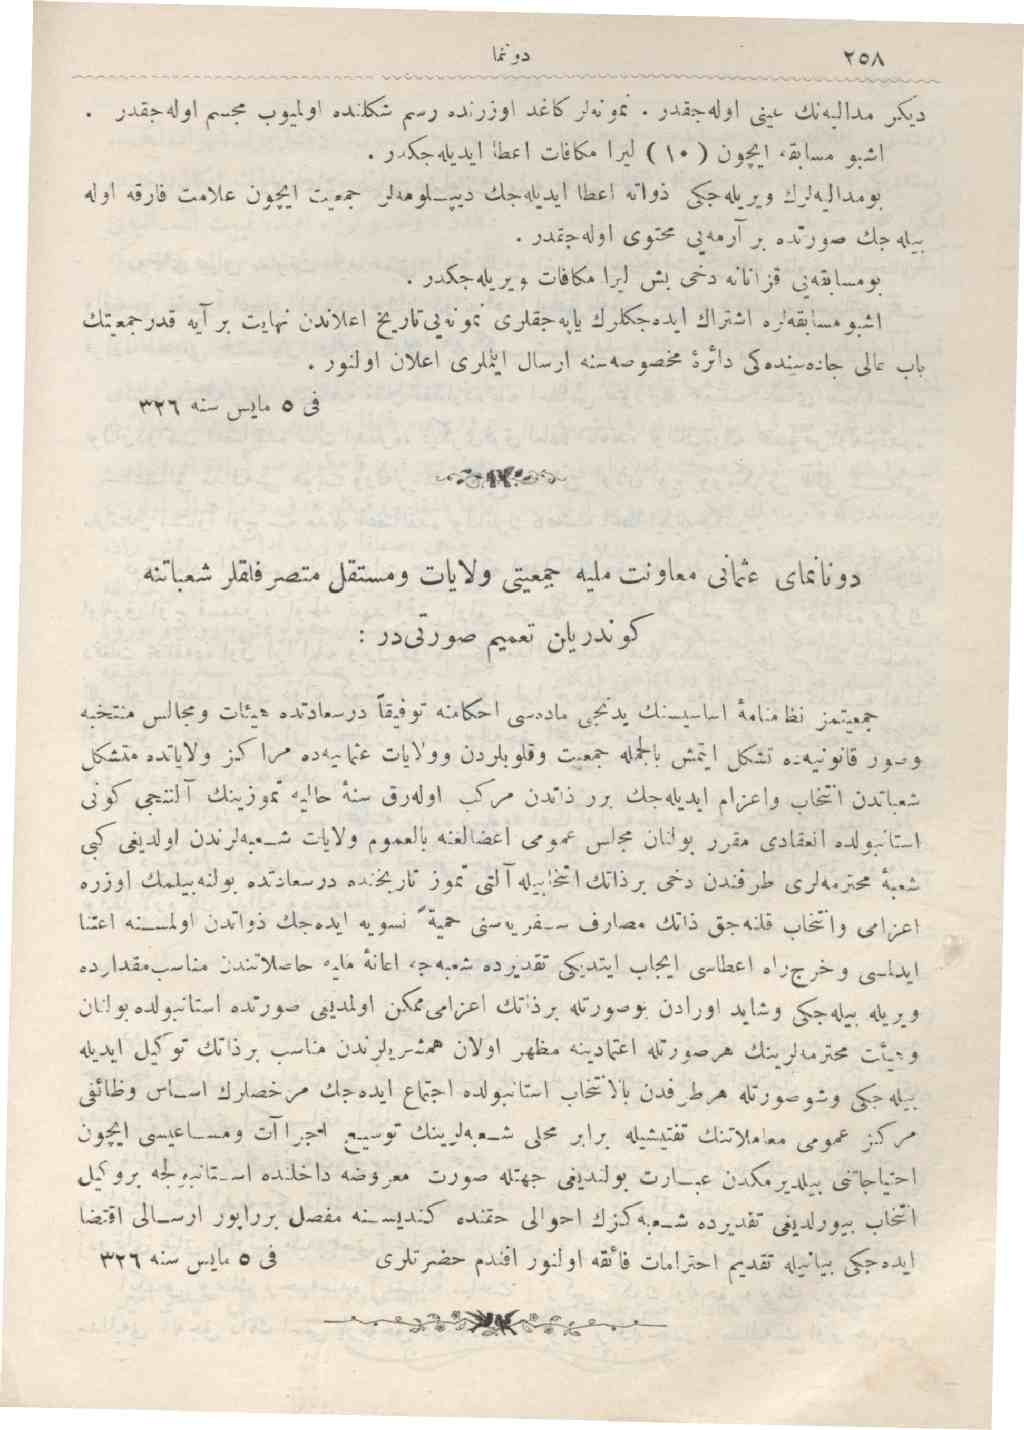 ٢٥٨
دونما
ديكر مداليه‌نك عينى اوله‌جقدر . نمونه‌لر كاغد اوزرنده رسم شكلنده اولميوب مجسم اوله‌جقدر .
اشبو مسابقه ايچون ( ١٠ ) ليرا مكافات اعطا ايديله‌جكدر .
بومداليه‌لرك ويريله‌جكى ذواته اعطا ايديله‌جك ديپلومه‌لر جمعيت ايچون علامت فارقه اوله
بيله‌جك صورتده بر آرمه‌يى محتوى اوله‌جقدر .
بومسابقه‌يى قزانانه دخى بش ليرا مكافات ويريله‌جكدر .
اشبو مسابقه‌لره اشتراك ايده‌جكلرك ياپه‌جقلرى نمونه‌يى تاريخ اعلاندن نهايت بر آيه قدر جمعيتك
باب عالى جاده‌سنده‌كى دائرۀ مخصوصه‌سنه ارسال ايتملرى اعلان اولنور .
فى ٥ مايس سنه ٣٢٦
دونانماى عثمانى معاونت مليه جمعيتى ولايات ومستقل متصرفلقلر شعباتنه
كوندريلن تعميم صورتى‌در :
جمعيتمز نظامنامۀ اساسيسنك يدنجى ماده‌سى احكامنه توفيقاً درسعادتده هيئات ومجالس منتخبه
وصور قانونيه‌ده تشكل ايتمش بالجمله جمعيت وقلوبلردن وولايات عثمانيه‌ده مراكز ولاياتده متشكل
شعباتدن انتخاب واعزام ايديله‌جك برر ذاتدن مركب اوله‌رق سنۀ حاليه تموزينك آلتنجى كونى
استانبولده انعقادى مقرر بولنان مجلس عمومى اعضالغنه بالعموم ولايات شعبه‌لرندن اولديغى كبى
شعبۀ محترمه‌لرى طرفندن دخى برذاتك انتخابيله آلتى تموز تاريخنده درسعادتده بولنه‌بيلمك اوزره
اعزامى وانتخاب قلنه‌جق ذاتك مصارف سفريه‌سنى حميةً تسويه ايده‌جك ذواتدن اولمسنه اعتنا
ايدلمسى وخرجراه اعطاسى ايجاب ايتديكى تقديرده شعبه‌جه اعانۀ مليه حاصلاتندن مناسب مقدارده
ويريله بيله‌جكى وشايد اورادن بوصورتله برذاتك اعزامى ممكن اولمديغى صورتده استانبولده بولنان
وهيئت محترمه‌لرينك هرصورتله اعتمادينه مظهر اولان همشهريلرندن مناسب برذاتك توكيل ايديله
بيله‌جكى وشوصورتله هرطرفدن بالانتخاب استانبولده اجتماع ايده‌جك مرخصلرك اساس وظائفى
مركز عمومى معاملاتنك تفتيشيله برابر محلى شعبه‌لرينك توسيع اجراآت ومساعيسى ايچون
احتياجاتنى بيلديرمكدن عبارت بولنديغى جهتله صورت معروضه داخلنده استانبولجه بروكيل
انتخاب بيورلديغى تقديرده شعبه‌كزك احوالى حقنده كنديسنه مفصل برراپور ارسالى اقتضا
ايده‌جكى بيانيله تقديم احترامات فائقه اولنور افندم حضرتلرى
فى ٥ مايس سنه ٣٢٦